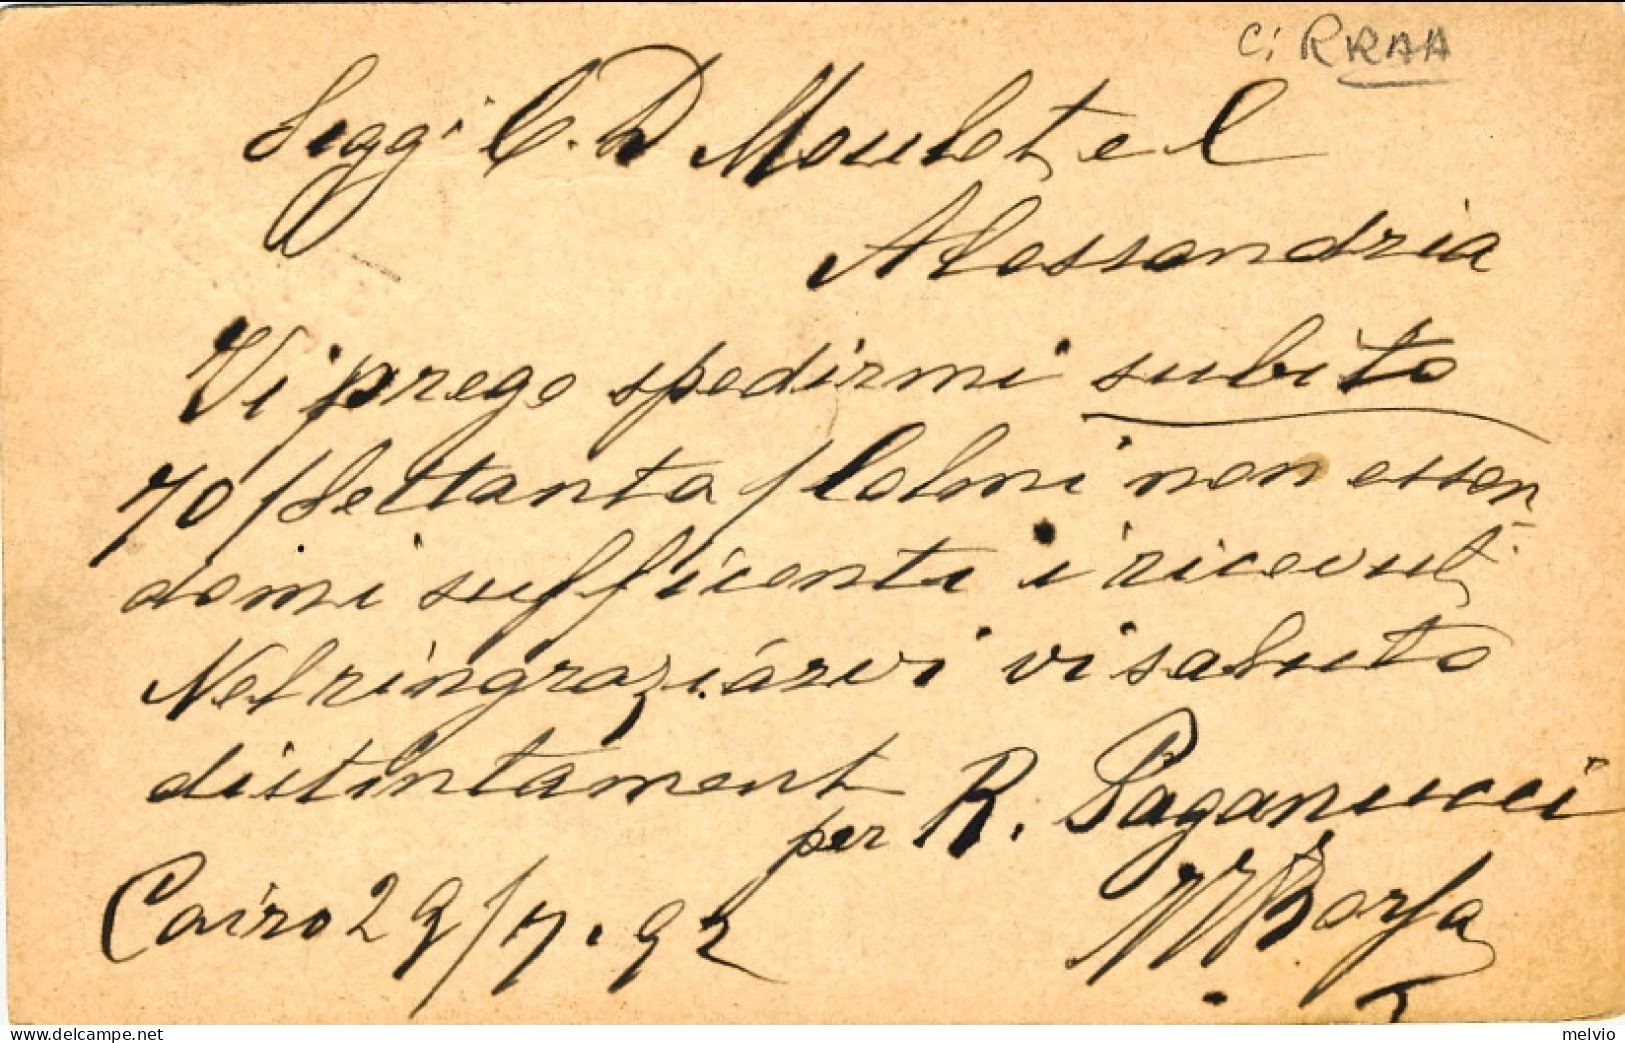 Sigg. C. D. Moulet e C
Alessandria
Vi prego spedirmi subito
70 / Settanta / Colmi non essen
domi sufficenti i ricevuti
Nel ringraziarvi vi saluto
distintament
per R. Paganucci
Cairo 29/7.92
melvio